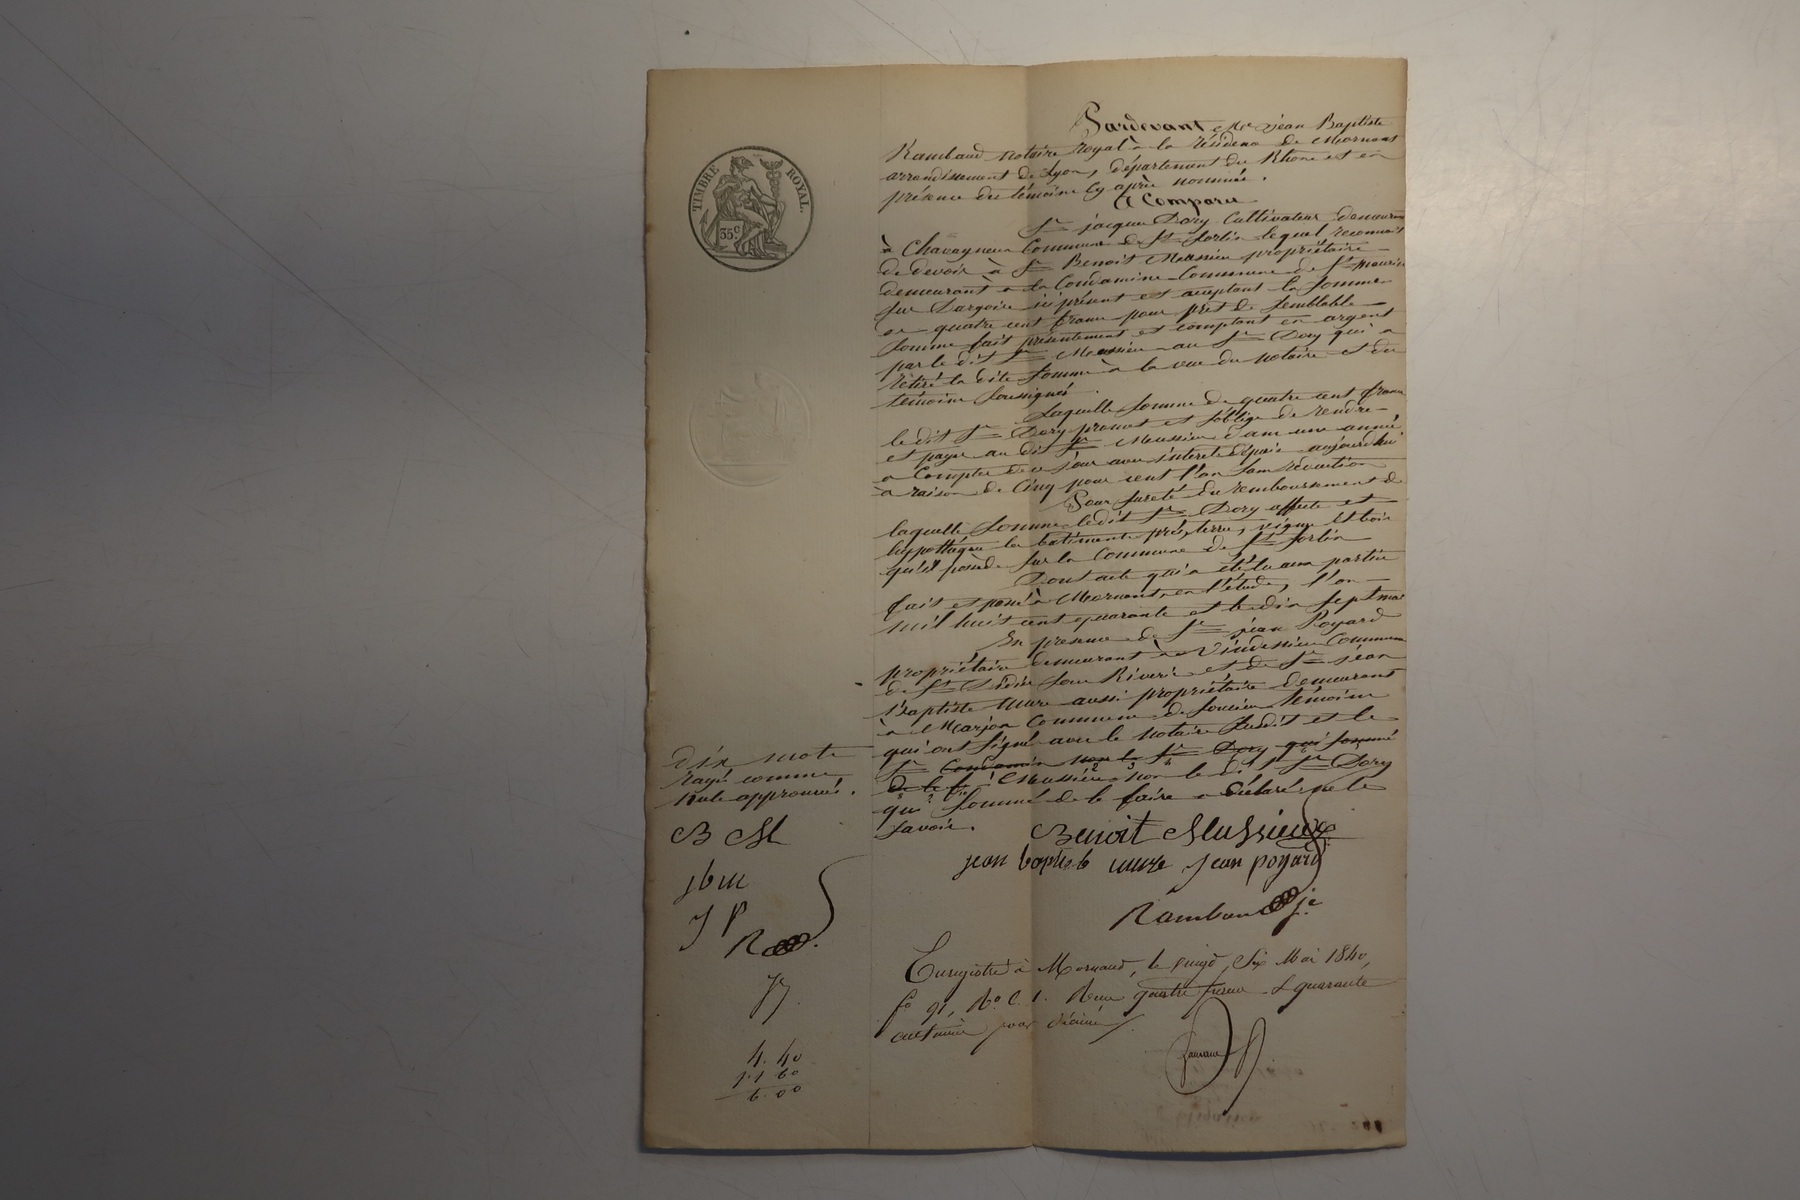 TIMBRE ROYAL.
35c
Pardevant Me jean Baptiste
Rambaud notaire royal à la résidence de Mornant
arrondissement de Lyon, département du Rhône et en
présence des témoins cy après nommés.
A Comparu
Sr jacque Dory Cultivateur demeurant
à Chavagneux Commune de St Sorlin lequel reconnait
de devoir à Sr Benoit Mussieu propriétaire
demeurant à la Condamine Commune de St maurice
sur Dargoire ici présent et aceptant la somme
de quatre cent francs pour prêt de semblable
somme fait présentement et comptant en argent
par le dit Sr Mussieu au Sr Dory qui a
retiré la dite somme à la vue du notaire et des
témoins soussignés.
Laquelle somme de quatre cent francs
le dit Sr Dory promet et s'oblige de rendre
et payer au dit Sr Mussieu dans une année
a Compter de ce jour avec intérêts depuis aujourd'hui
à raison de Cinq pour cent l'an sans réduction
Pour sureté du remboursement de
laquelle somme le dit Sr Dory affecte et
hypottéque les batiments, prés, terres, vignes et bois
qu'il possède sur la Commune de St Sorlin
Dont acte qui a été lu aux parties
fait et passé à Mornant, en l'étude, l'an
mil huit cent quarante et le dix sept mai
En presence de Sr jean Poyard
propriétaire demeurant à Commune
de St Didier sous Riverie et de Sr jean
Baptiste mure aussi propriétaire demeurant
à Marjon Commune de Soucieu témoins
qui ont signé avec le notaire susdit et le
Sr Condamin non le Sr Dory qui sommé
de le Mussieu non le dit Sr Dory
qui sommé de le faire a déclaré ne le
savoir.
dix mots
rayé comme
nuls approuvés.
B M
jbm
J P
R
Benoit Mussieux
jean baptiste mure jean poyard
Rambaud
Enregistré à Mornant, le vingt six Mai 1840,
fo 91, Ro C. 1. Reçu quatre francs & quarante
centimes pour décime
4. 40
1. 60
6. 00